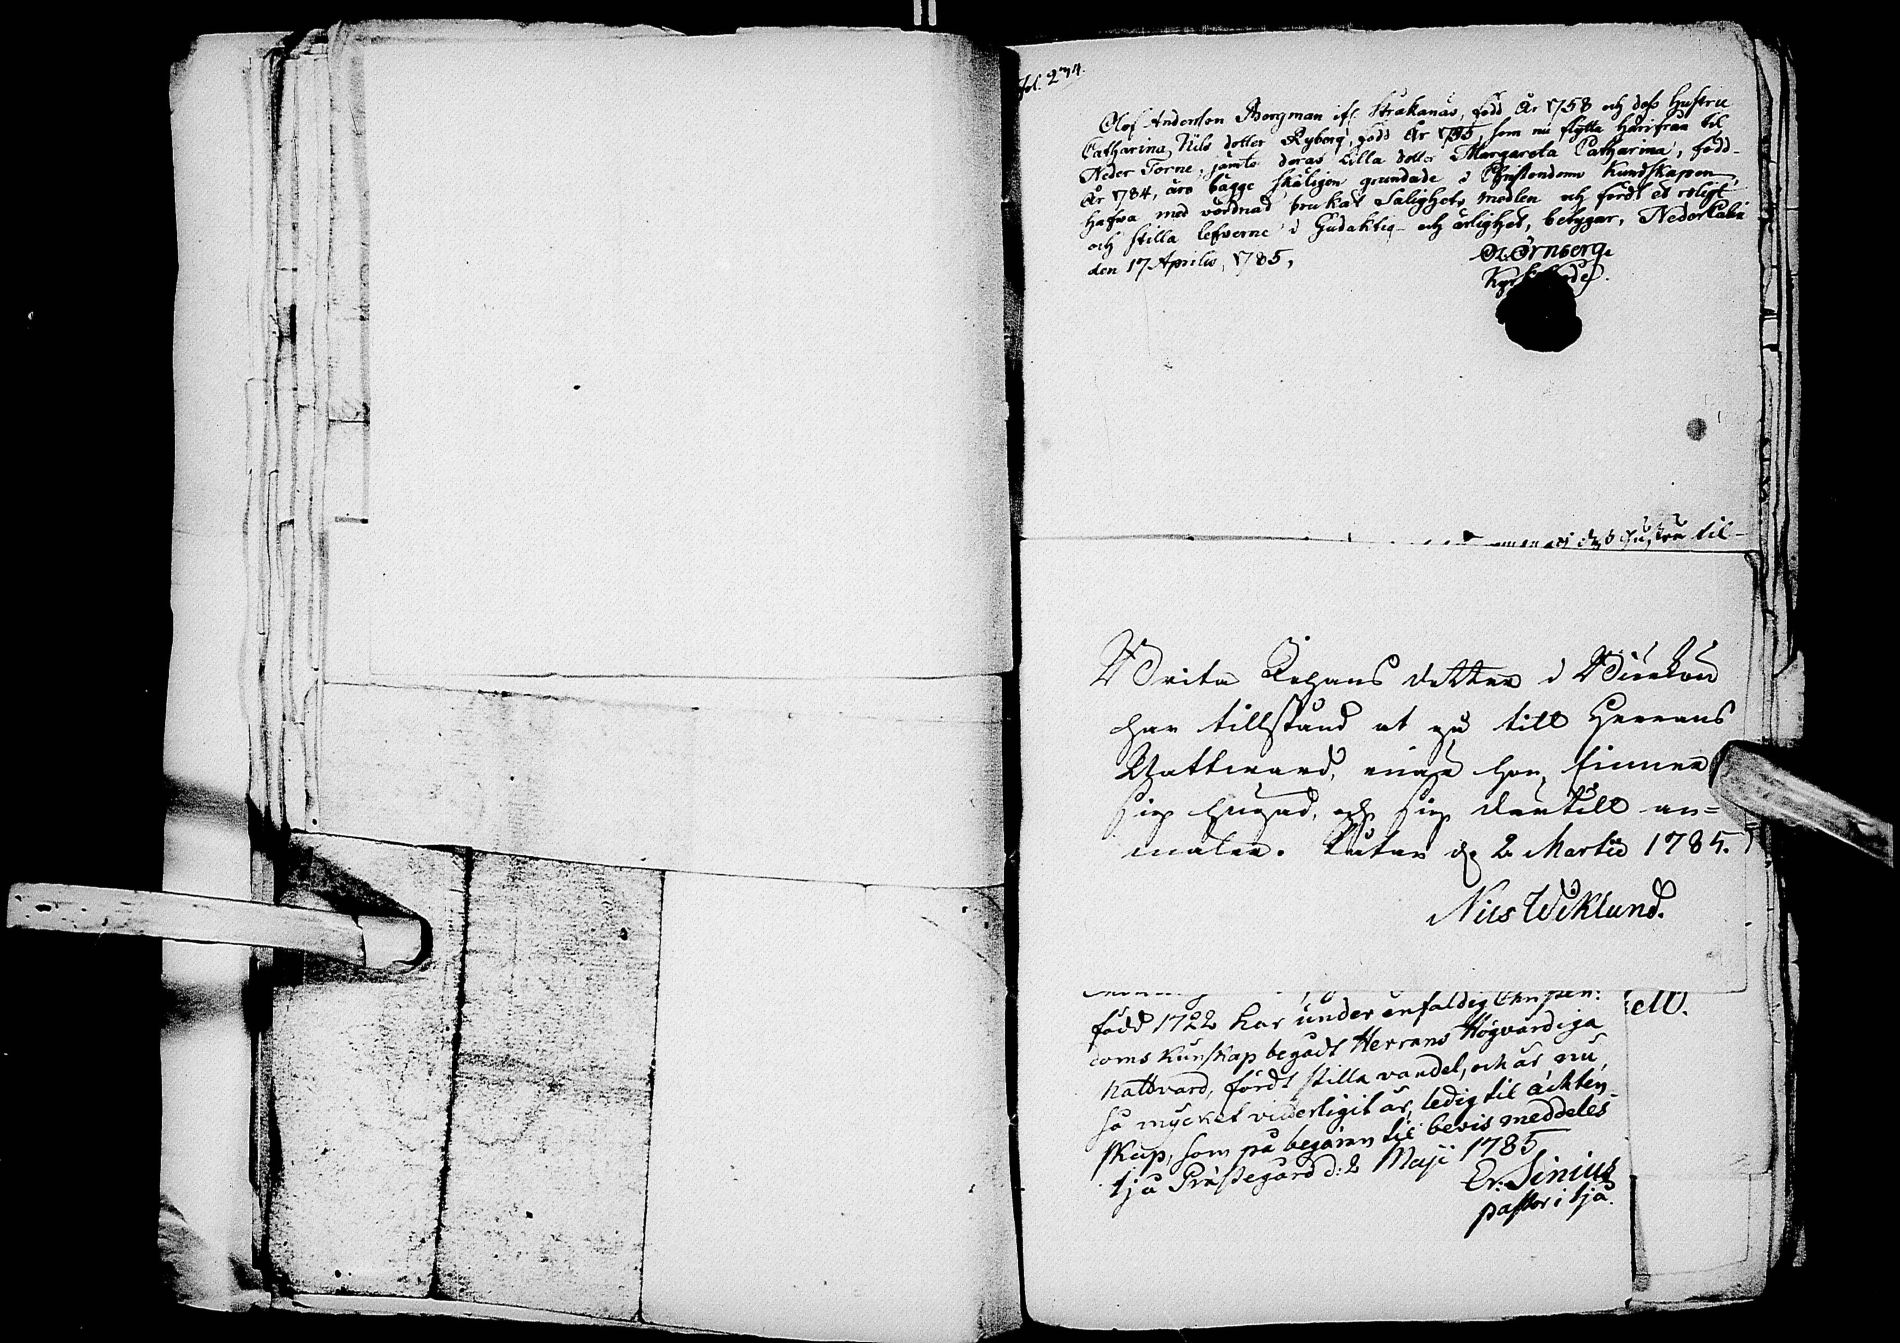 Fol. 274.
Olof Anderson Bergman ifr. Strakanäs, född År 1758 och dess hustru
Catharina Nils dotter Ryberg, född År 1755, som nu flytta härifrån til
Neder Torne, jämte deras lilla dotter Margareta Catharina, född
År 1784, äro bägge skäligen grundade i Christendoms kundskapen,
hafva med vördnad brukat Salighets medlen och fördt et roligt
och stilla lefverne i Gudaktig- och ärlighet, betygar, NederCalix
den 17 Aprilis, 1785,
O. Örnberg.
dess hustru til
Brita Johans dotter i
har tillstånd at gå till Herrans
Nattward, när hon finner
sig hugad, och sig dertill an=
mäler. d. 2 Martii 1785.
Nils Wiklund.
född 1722 har under enfaldig Christen:
doms kunskap begådt Herrans Högvärdiga
nattvard, fördt stilla vandel, och är nu,
så mycket vitterligit är, ledig til äckten-
skap, som på begäran til bevis meddeles
Prästegård d: 2 Maji 1785
Er: Sinius
pastor i